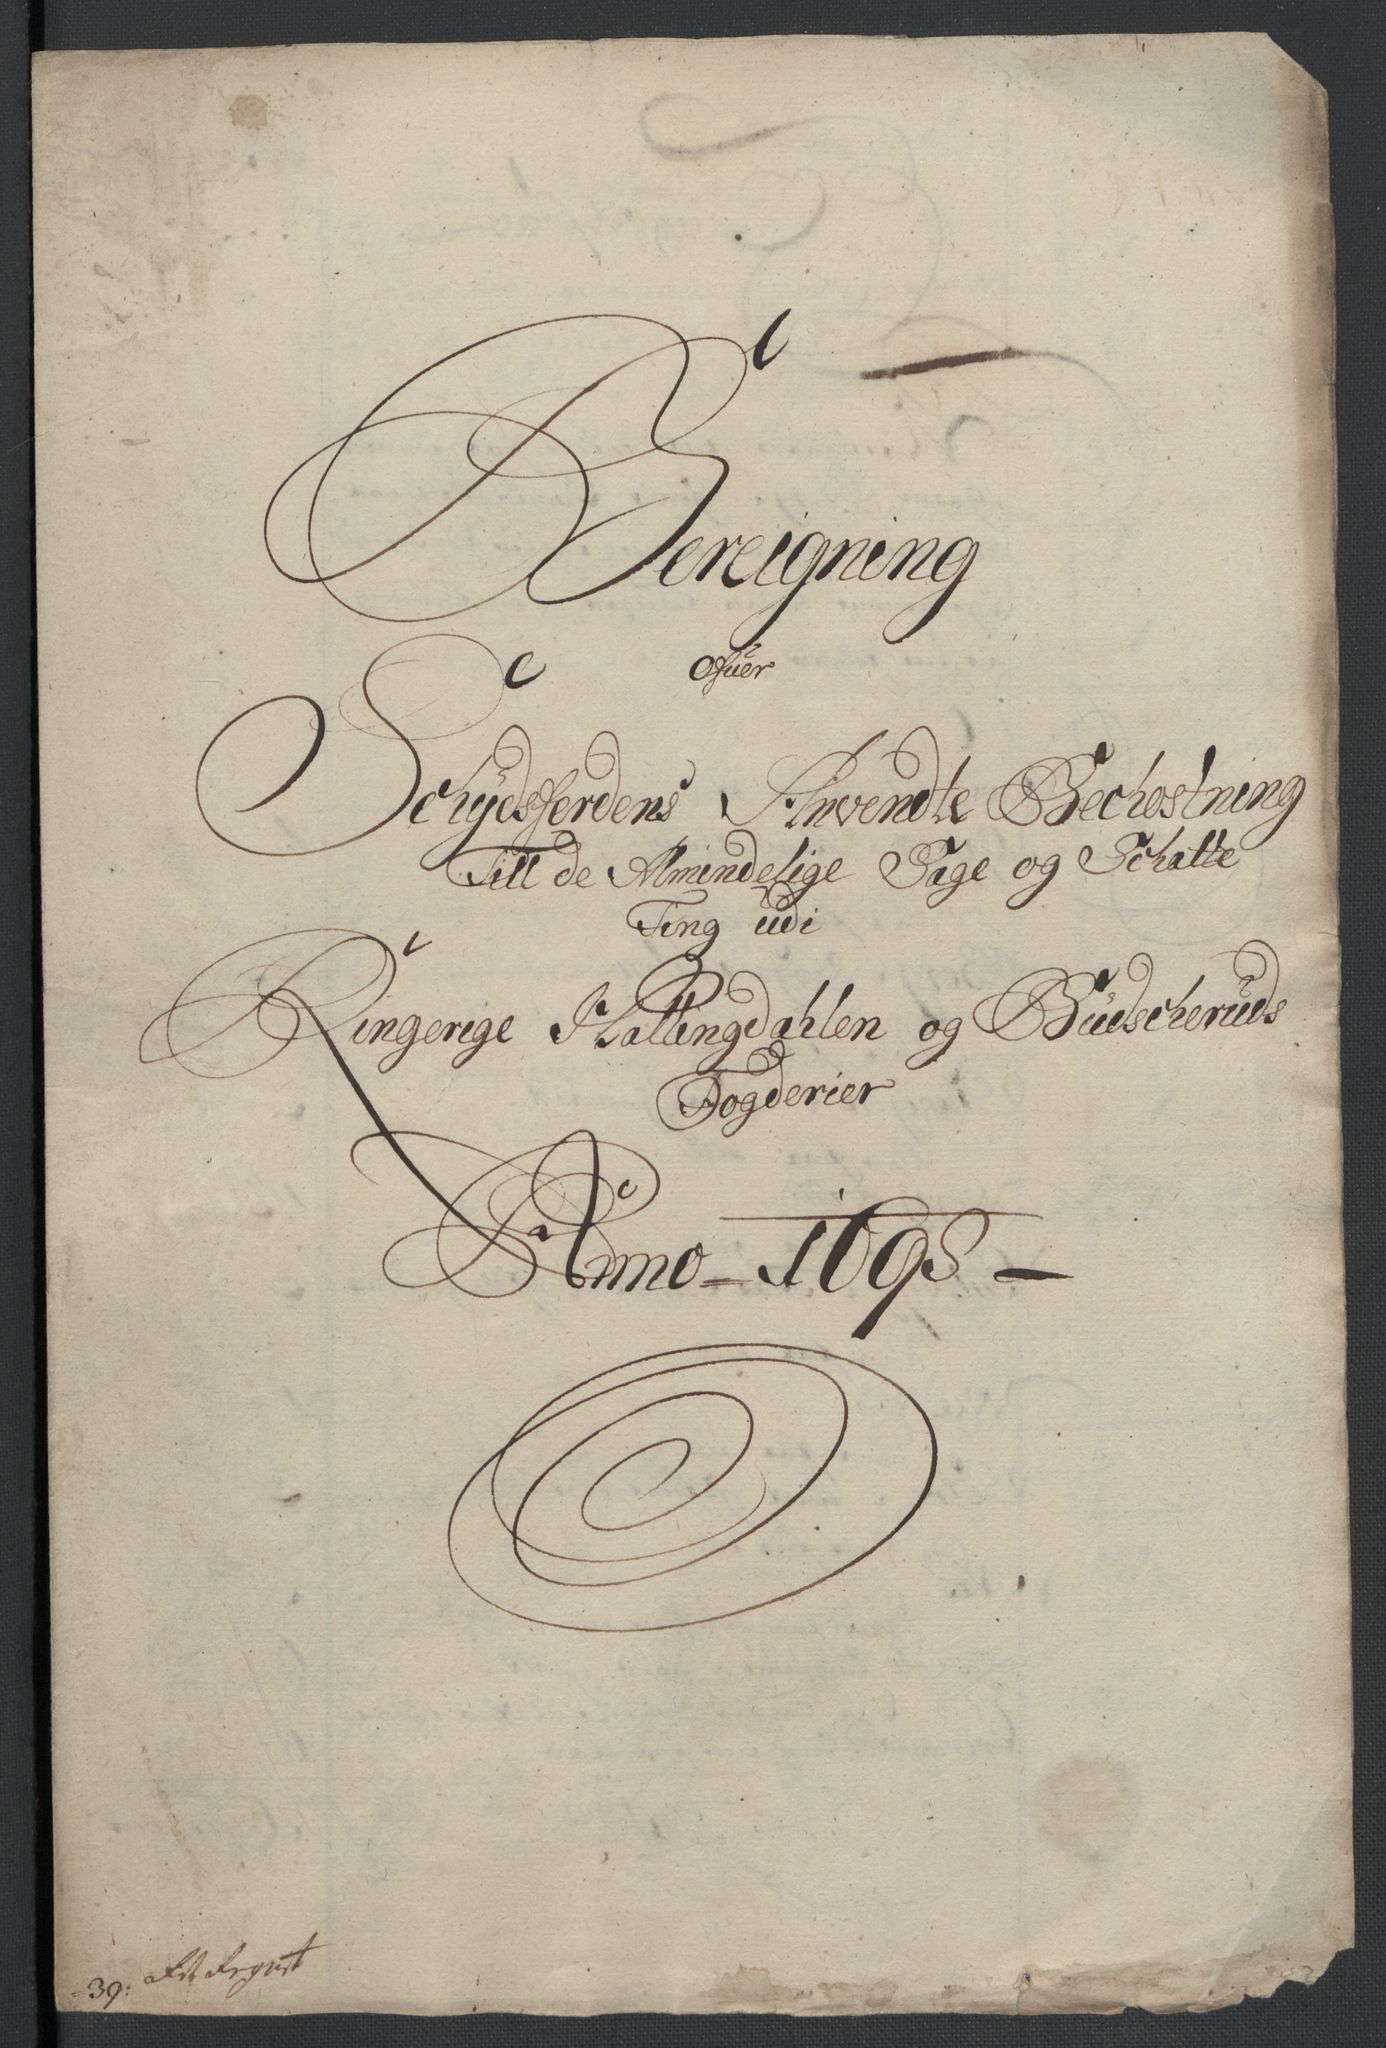 Bereigning
Ofuer
Schydsferdens Anvendte Bechostning
Till de Almindelige Sage og Schatte
Ting udi
Ringerige Hallingdahlen og Budscheruds
Fogderier
Anno 1695
39: